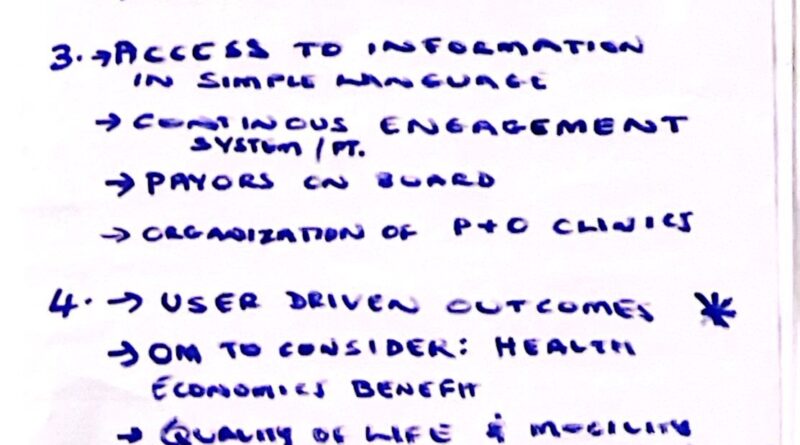 3. → ACCESS TO INFORMATION
IN SIMPLE LANGUAGE
→ CONTINOUS ENGAGEMENT
SYSTEM / PT.
→ PAYORS ON BOARD
→ ORGANIZATION OF P+O CLINICS
4. → USER DRIVEN OUTCOMES *
→ OM TO CONSIDER: HEALTH
ECONOMICS BENEFIT
→ QUALITY OF LIFE & MOBILITY